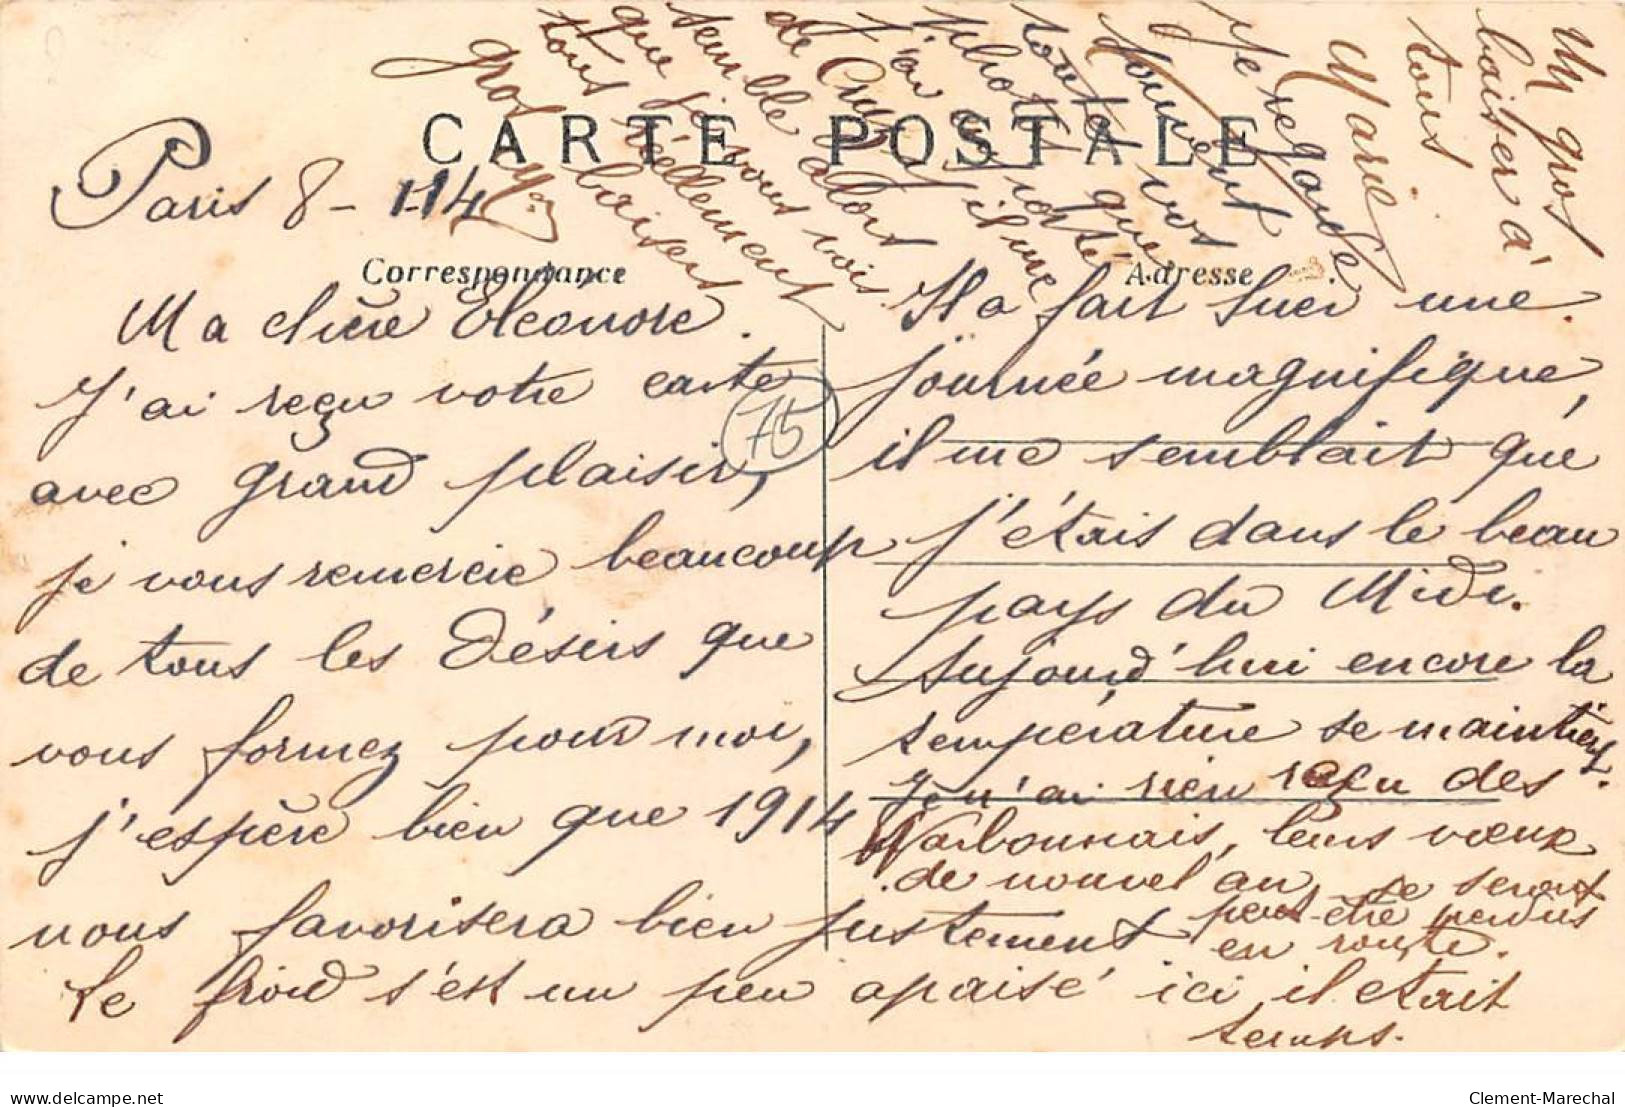 CARTE POSTALE
Paris 8-1-14
Correspondance
Adresse
Ma chère Eléonore.
J'ai reçu votre carte
avec grand plaisir,
je vous remercie beaucoup
de tous les désirs que
vous formez pour moi,
j'espère bien que 1914
nous favorisera bien justement
le froid s'est un peu apaisé ici, il etait
temps.
75
Il a fait hier une
journée magnifique,
il me semblait que
j'étais dans le beau
pays du Midi.
Aujourd'hui encore la
température se maintient.
Je n'ai rien reçu des
Narbonnais, leurs vœux
de nouvel an se seront
peut-être perdus
en route.
Je regarde
souvent vos
toutes que
j'ai
de
semble alors
que je vous vois
tous réellement
gros baisers
Marie
Un gros
baiser à
tous
delcampe.net
Clement-Marechal